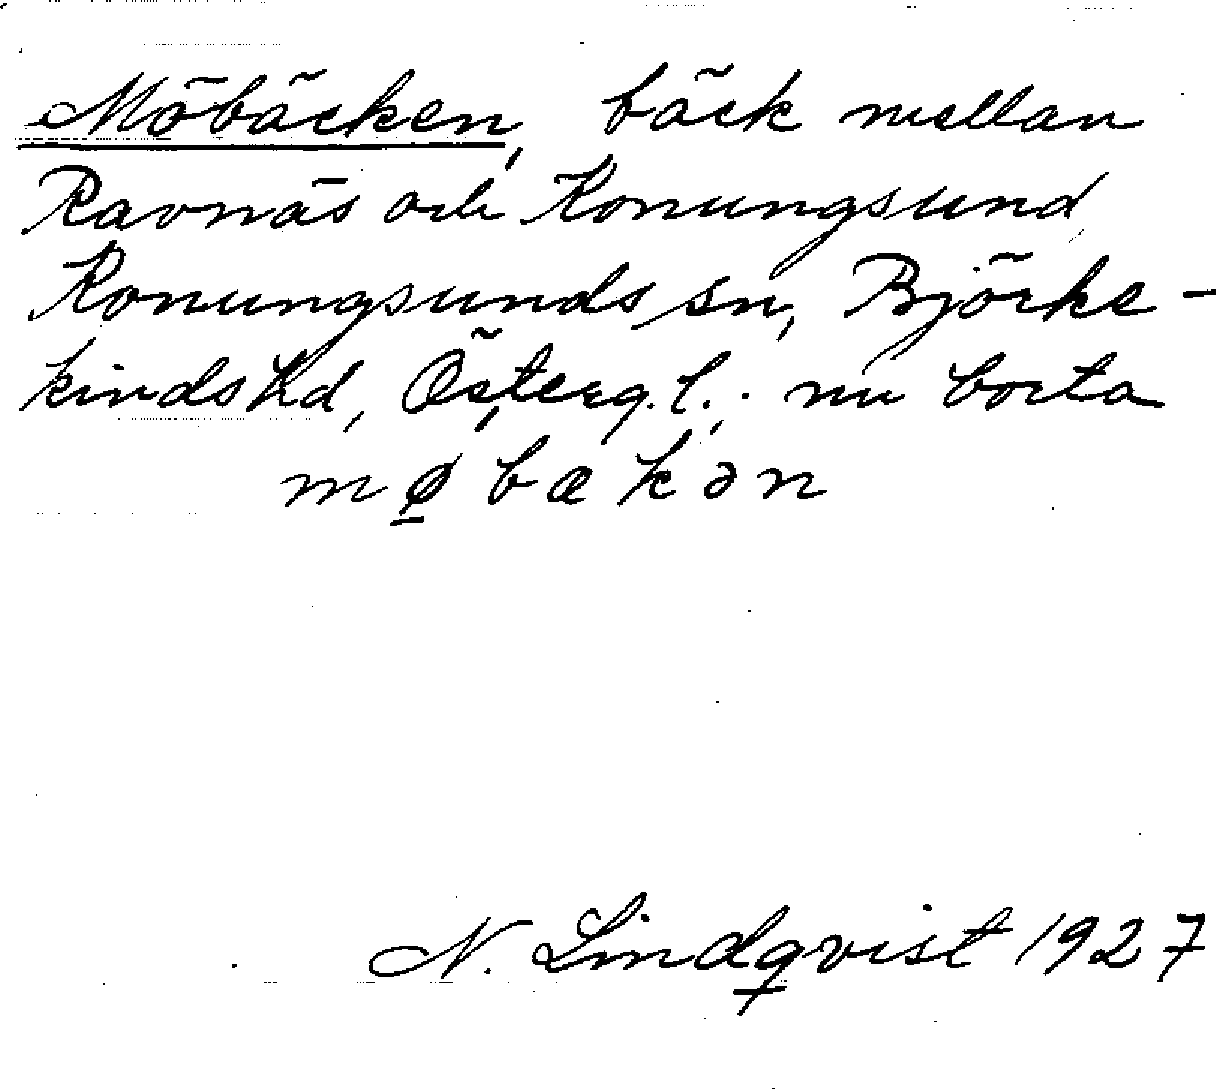 Möbäcken, bäck mellan
Ravnäs och Konungsund
Konungsunds sn, Björke-
kinds hd, Österg. l.; nu borta
møbækən
N. Lindqvist 1927